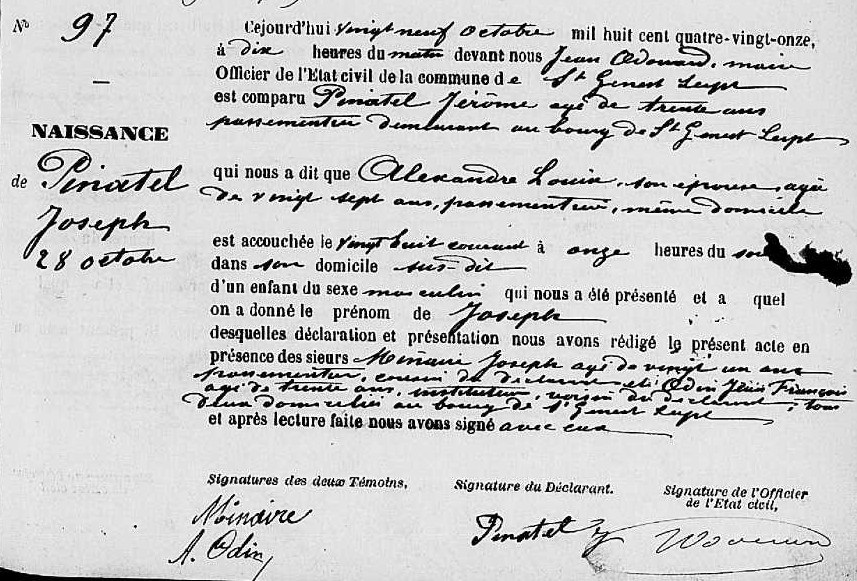 No 97
Cejourd'hui vingt neuf octobre mil huit cent quatre-vingt-onze,
à dix heures du matin devant nous Jean Odouard, maire
Officier de l'Etat civil de la commune de St Genest Lerpt
est comparu Pinatel Jérôme agé de trente ans
passementier demeurant au bourg de St Genest Lerpt
NAISSANCE
de Pinatel
Joseph
28 octobre
qui nous a dit que Alexandre Louise, son épouse, agée
de vingt sept ans, passementière, même domicile
est accouchée le vingt huit courant à onze heures du soir
dans son domicile sus-dit
d'un enfant du sexe masculin qui nous a été présenté et a quel
on a donné le prénom de Joseph
desquelles déclaration et présentation nous avons rédigé le présent acte en
présence des sieurs Minaire Joseph agé de vingt un ans
passementier, cousin du déclarant et Odin François
agé de trente ans, instituteur, voisin du déclarant, tous
deux domiciliés au bourg de St Genest Lerpt
et après lecture faite nous avons signé avec eux
Signatures des deux Témoins,
Signature du Déclarant.
Signature de l'Officier
de l'Etat civil,
Minaire
A. Odin
Pinatel